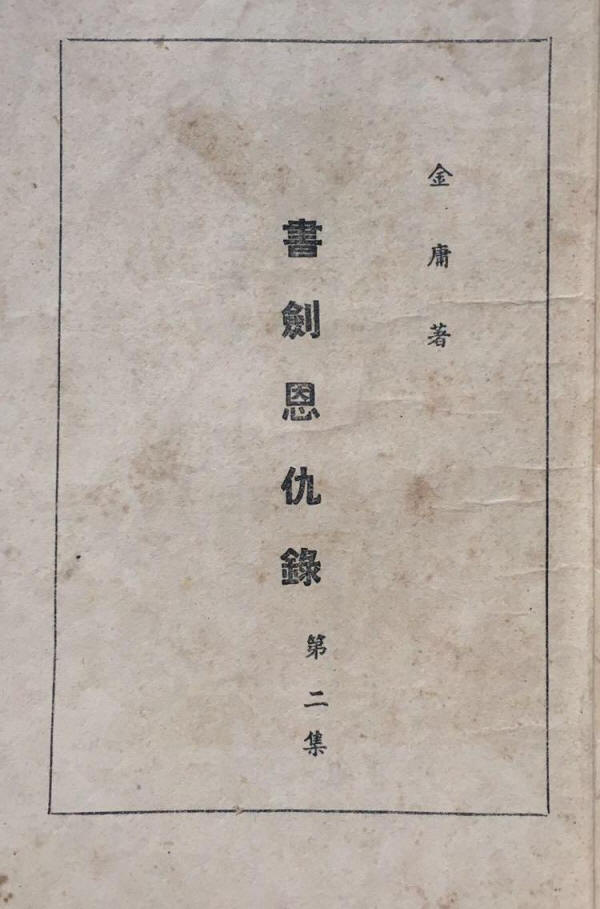 金庸著
書劍恩仇錄
第二集